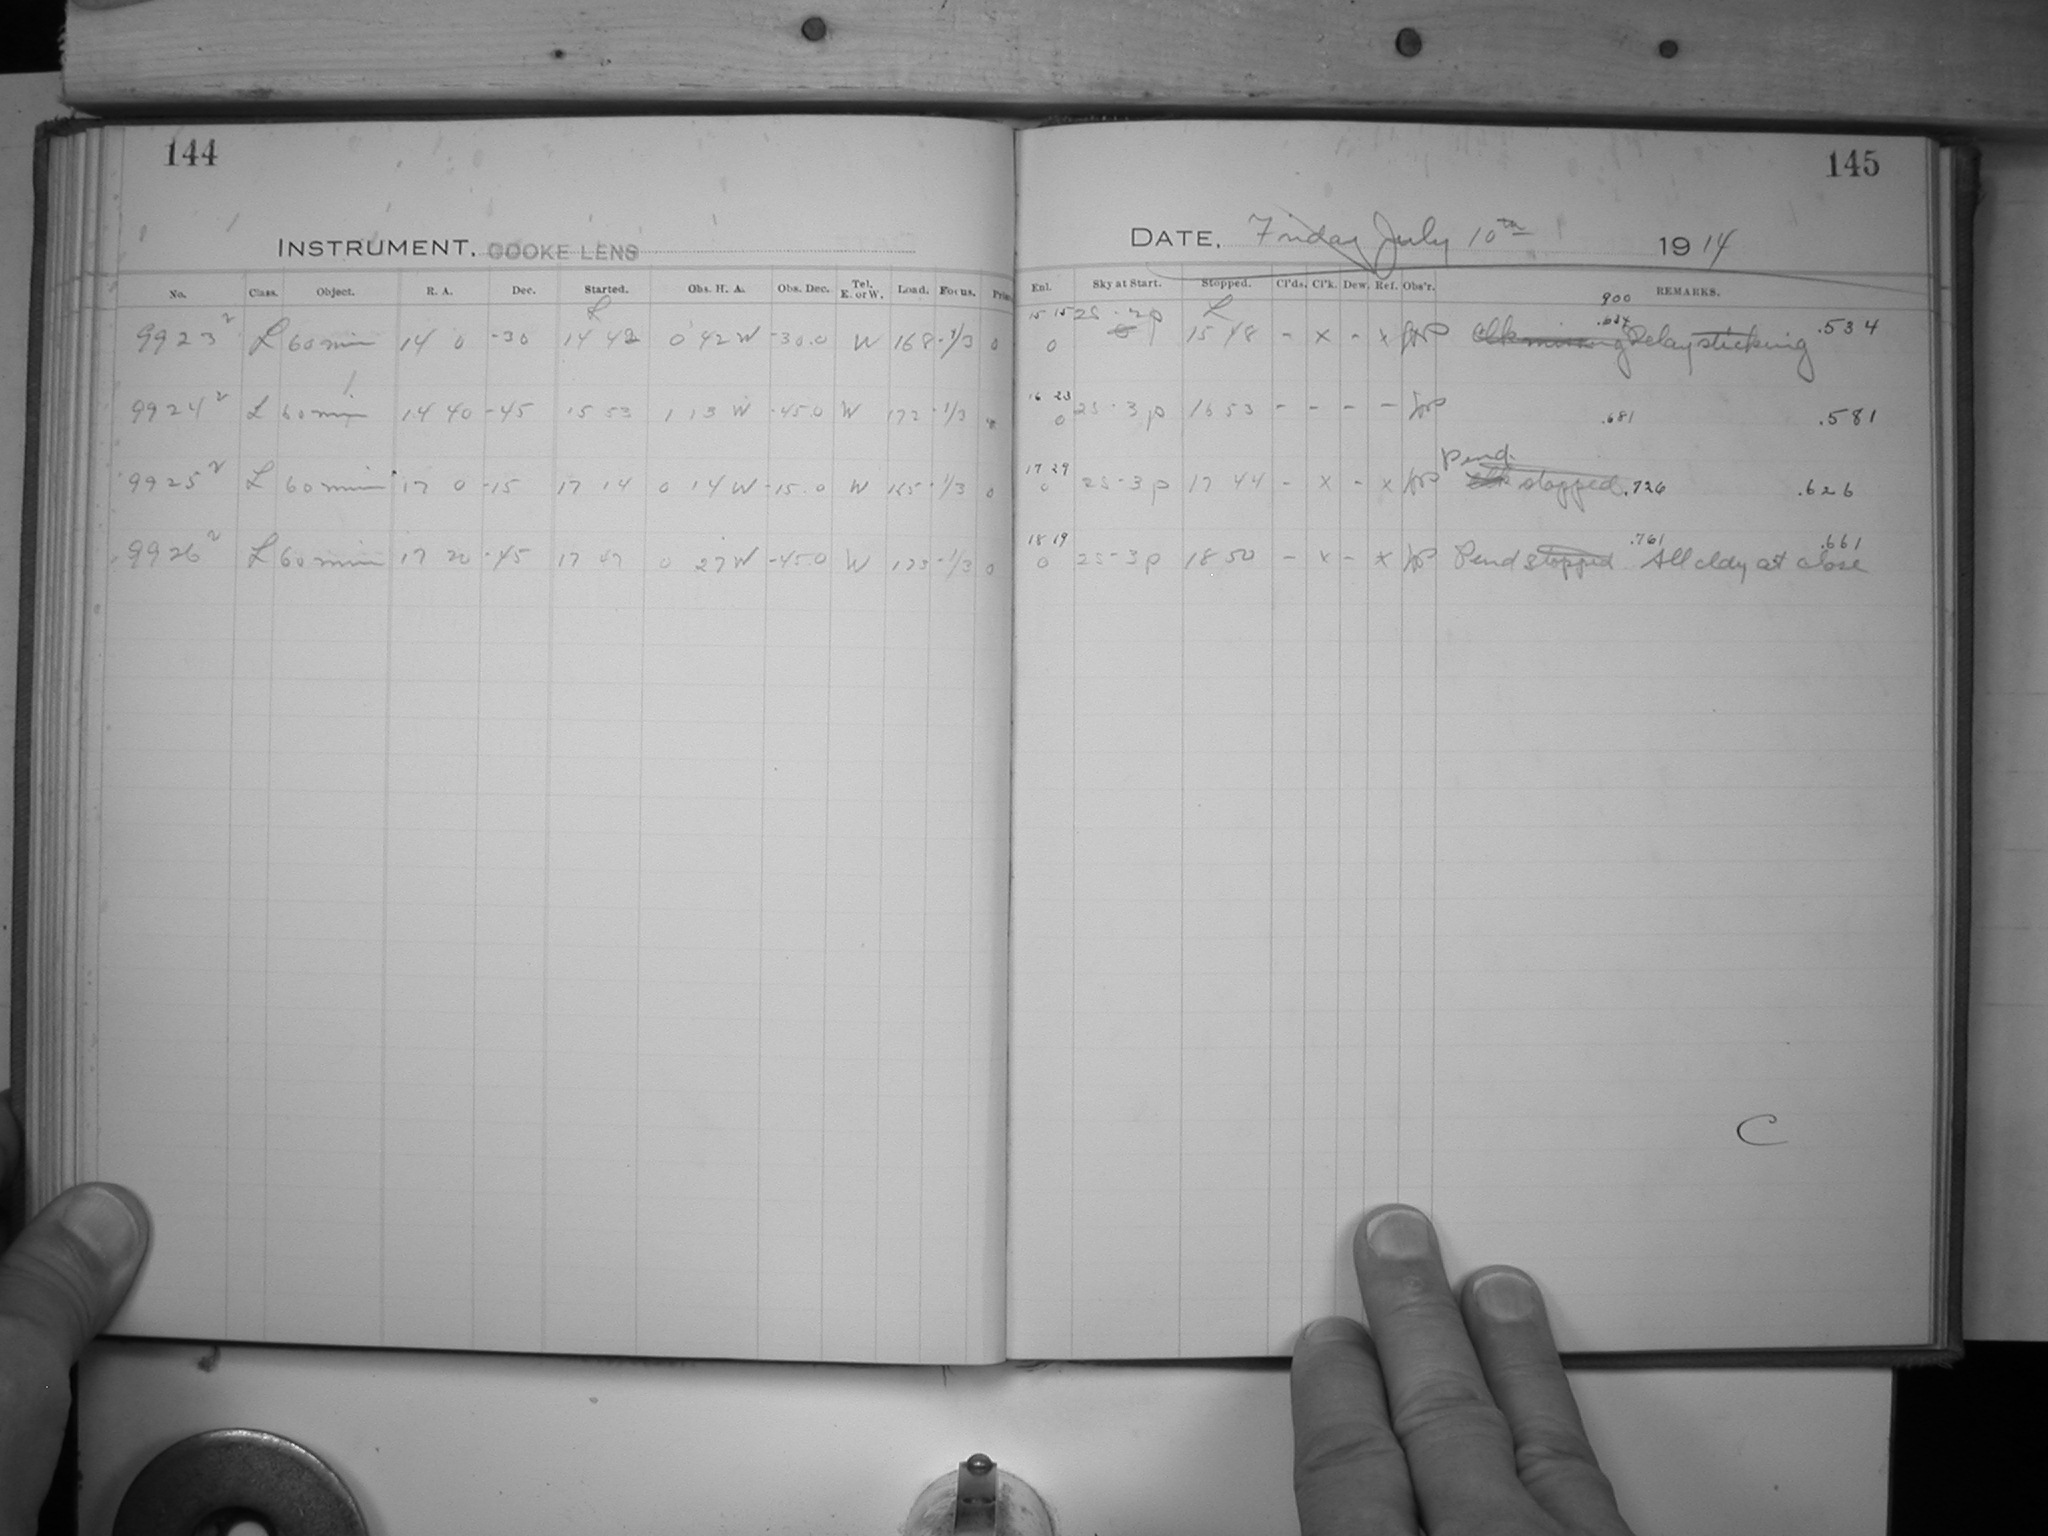 144
INSTRUMENT. COOKE LENS
No. Class. Object. R. A. Dec. Started. Obs. H. A. Obs. Dec. Tel. E. or W. Load. Focus.
9923² L 60 min 14 0 -30 14 42 0 42 W -30.0 W 168 -1/3 0
9924² L 60 min 14 40 -45 15 53 1 13 W -45.0 W 172 -1/3
9925² L 60 min 17 0 -15 17 14 0 14 W -15.0 W 165 -1/3 0
9926² L 60 min 17 20 -45 17 47 0 27 W -45.0 W 173 -1/3 0
145
DATE, Friday July 10th 1914
Enl. Sky at Start. Stopped. Cl'ds. Cl'k. Dew. Ref. Obs'r. REMARKS.
900
15 15 2S - 2p
0 15 48 - x - x Relay sticking .534
16 23
0 2S - 3p 16 53 - - - - .681 .581
17 29 Pend.
0 2S - 3p 17 44 - x - x stopped .726 .626
18 19 .761 .661
0 2S - 3p 18 50 - x - x Pend stopped All cldy at close
C